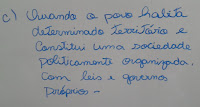 c) Quando o povo habita
determinado território e
construi uma sociedade
politicamente organizada.
com leis e governos
próprios -